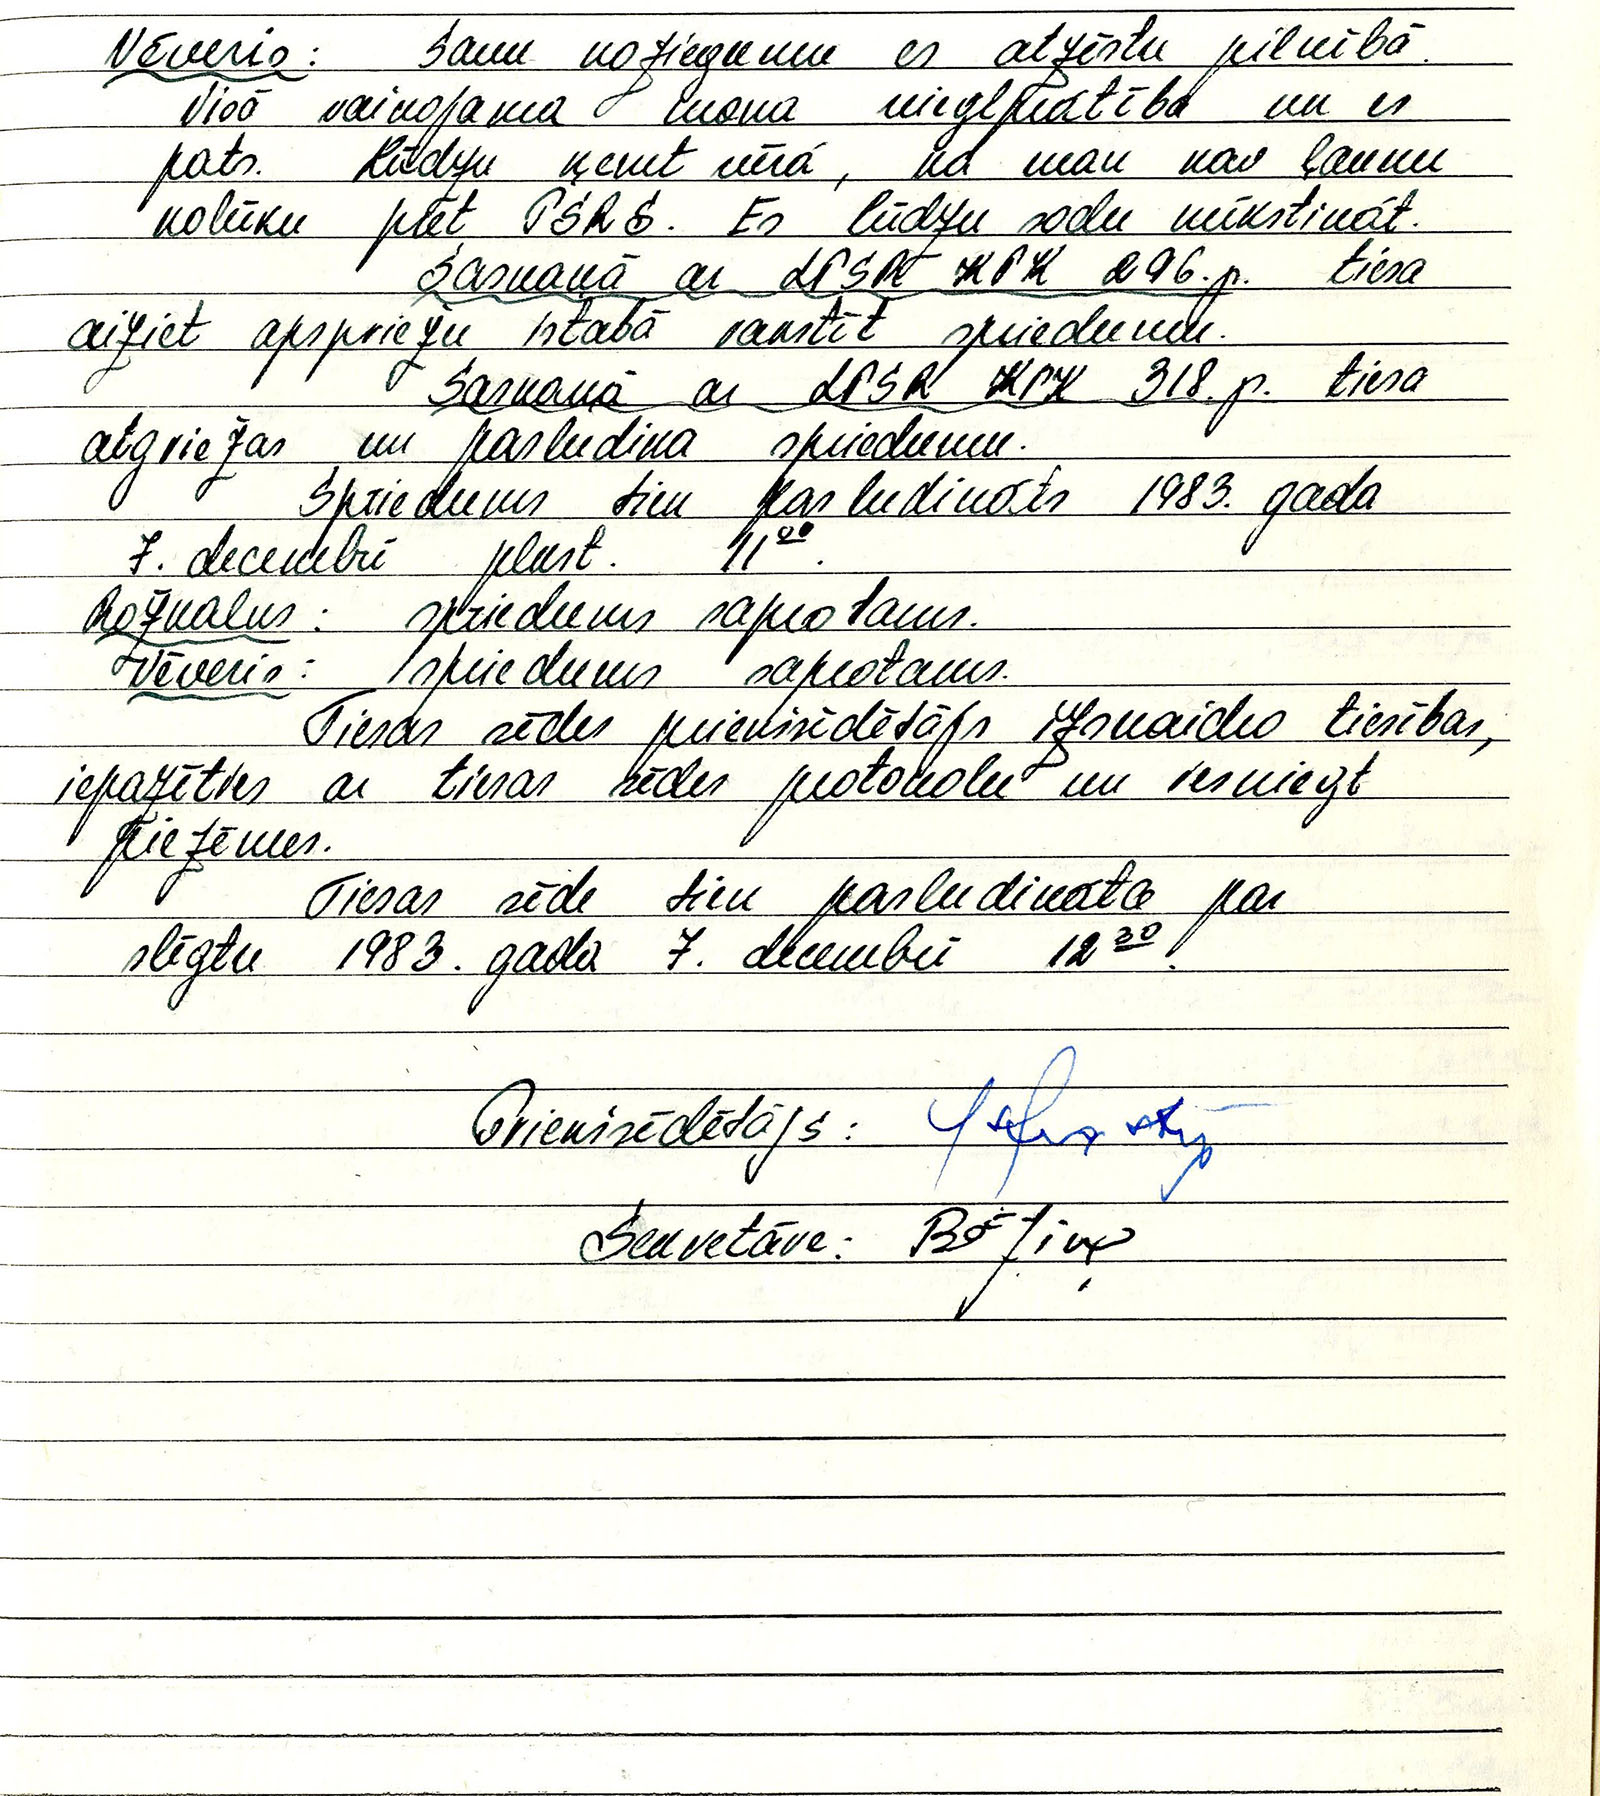 Vēveris: Savu noziegumu es atzīstu pilnībā.
Visā vainojama mana vieglprātība un es
pats. Lūdzu ņemt vērā, ka man nav ļaunu
nolūku pret PSRS. Es lūdzu sodu mīkstināt.
Saskaņā ar LPSR KPK 296. p. tiesa
aiziet apspriežu istabā rakstīt spriedumu.
Saskaņā ar LPSR KPK 318. p. tiesa
atgriežas un pasludina spriedumu.
Spriedums tiek pasludināts 1983. gada
7. decembrī plkst. 11⁰⁰.
Rožkalns: spriedums saprotams.
Vēveris: spriedums saprotams.
Tiesas sēdes priekšsēdētājs izskaidro tiesības,
iepazīties ar tiesas sēdes protokolu un iesniegt
piezīmes.
Tiesas sēde tiek pasludināta par
slēgtu 1983. gada 7. decembrī 12³⁰.
Priekšsēdētājs:
Sekretāre: